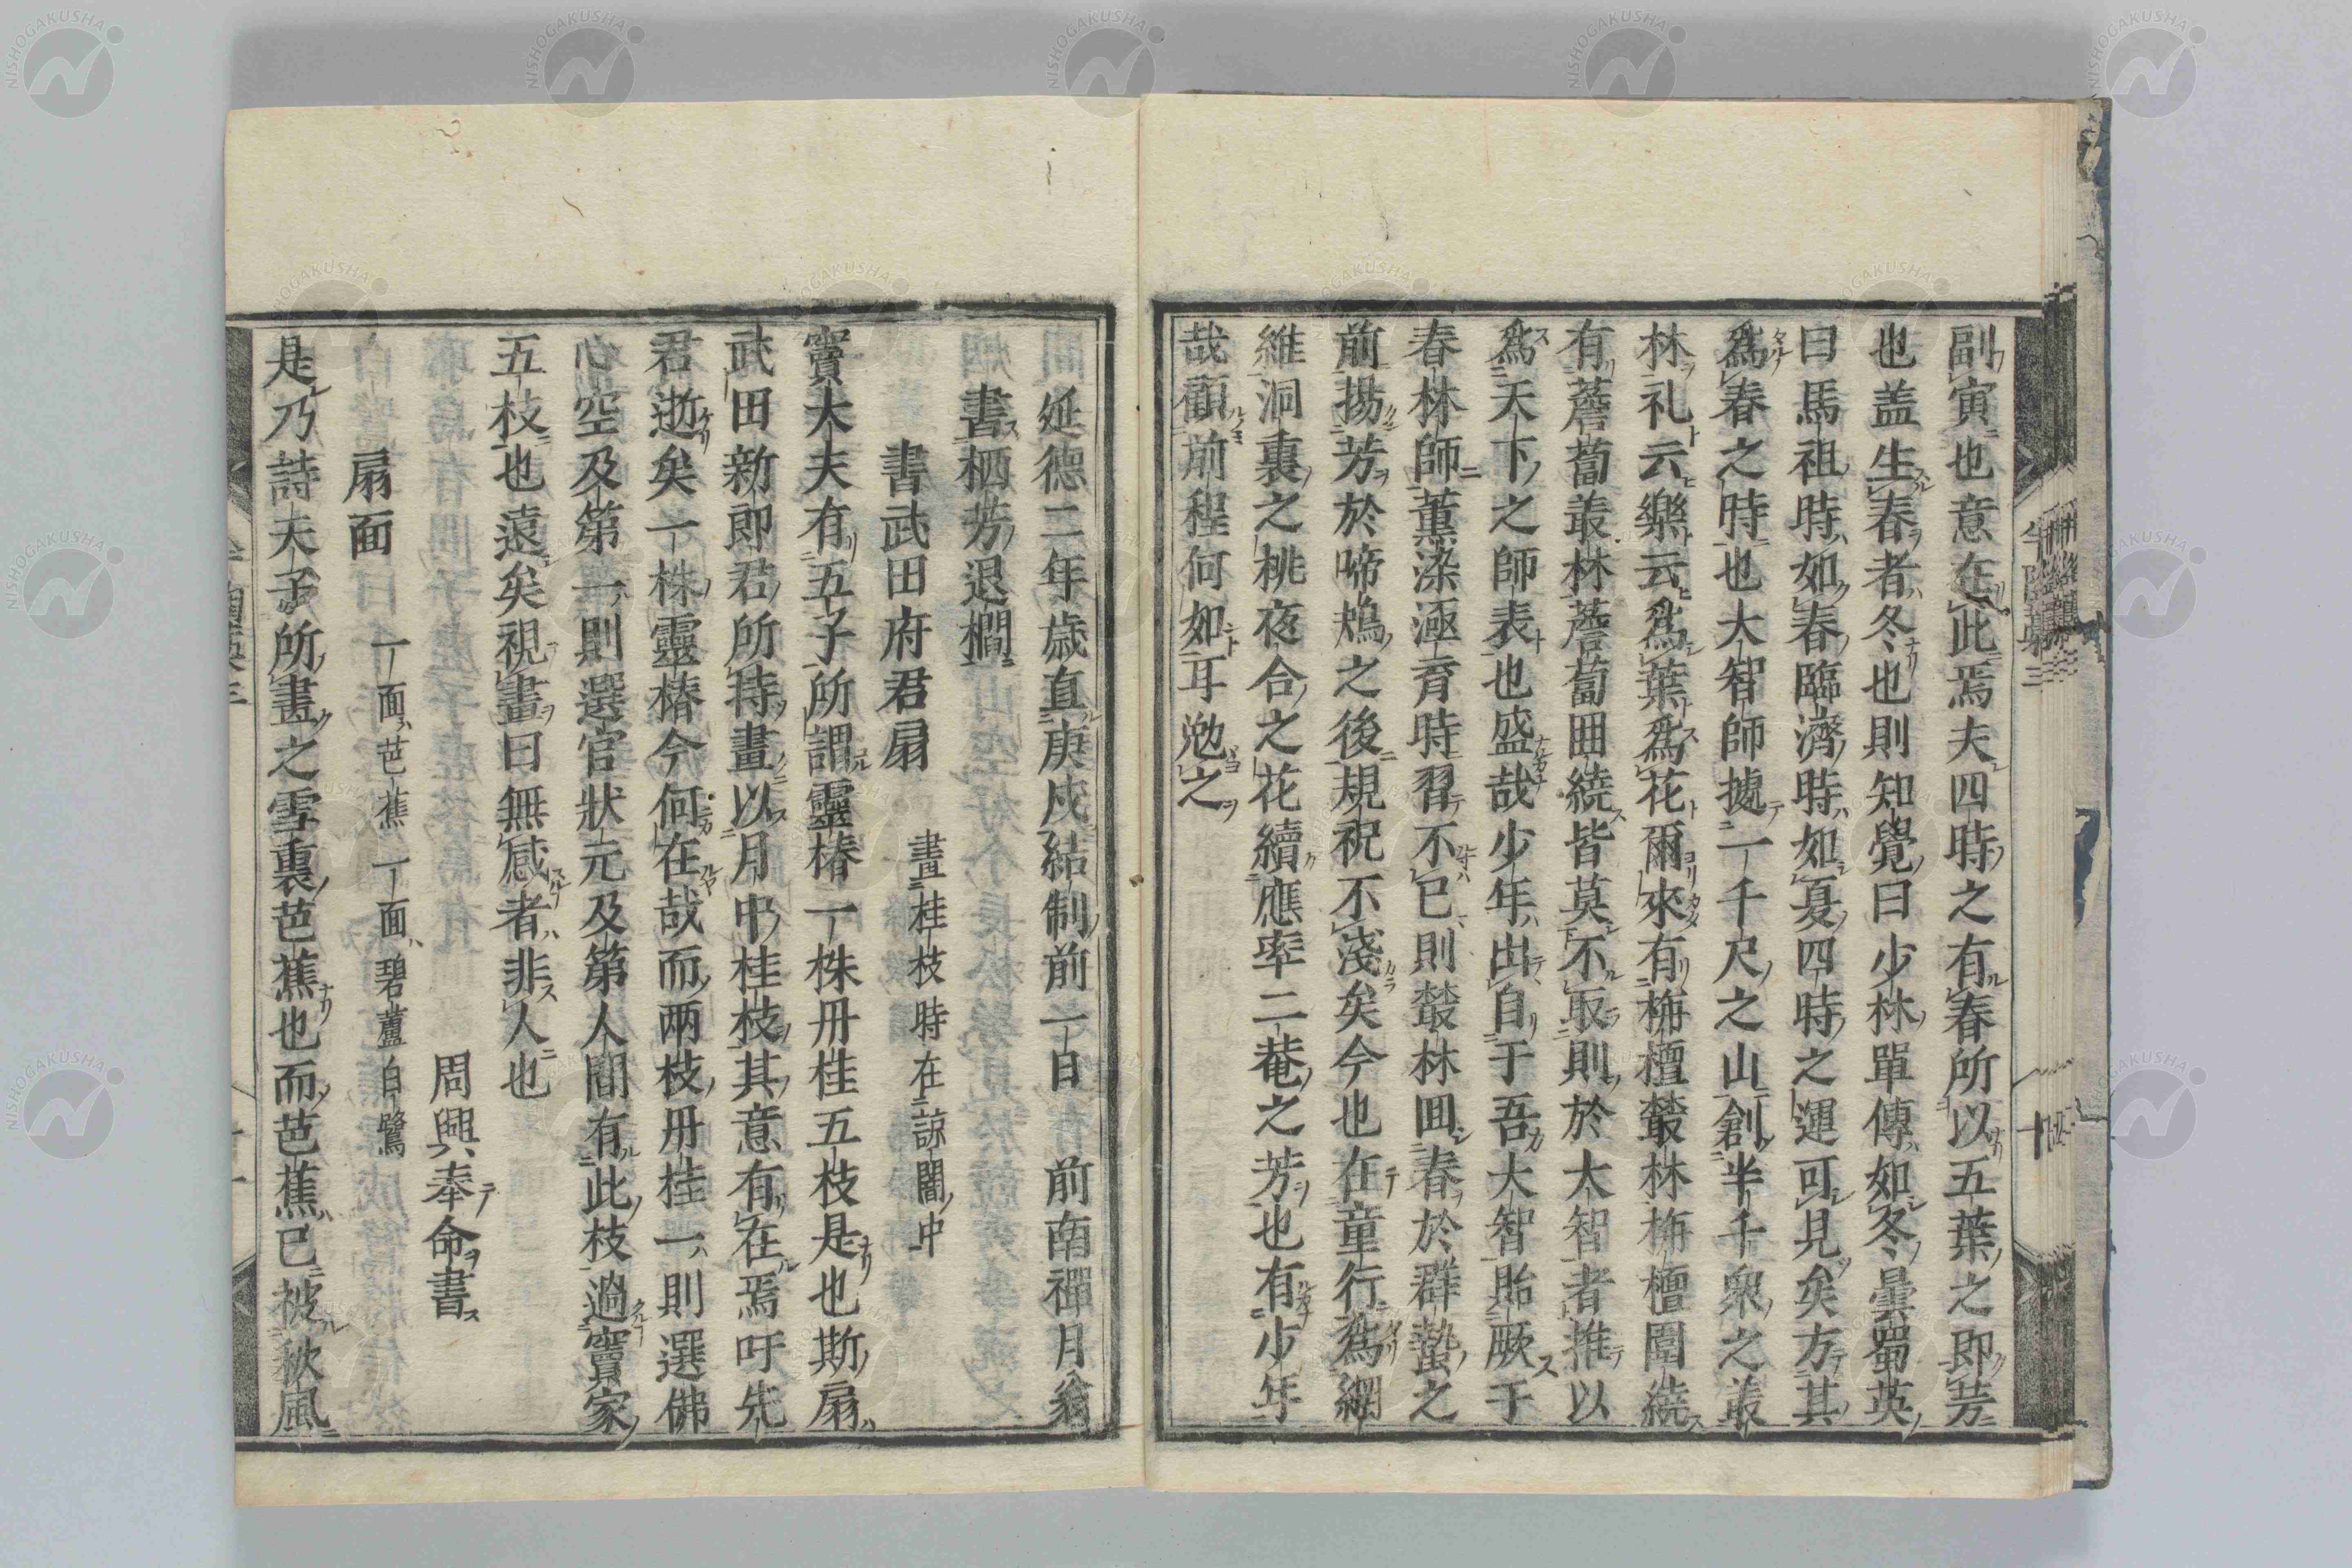 副寅也意在此焉夫四時之有春所以五葉之即芸
也盖生春者冬也則知覺曰少林單傳如冬曇蜀英
曰馬祖時如春臨濟時如夏四時之運可見矣方其
爲春之時也大智師據一千尺之山創半千衆之叢
林礼云樂云爲葉爲花爾來有栴檀叢林栴檀圍繞
有薝蔔叢林薝蔔囲繞皆莫不取則於大智者推以
爲天下之師表也盛哉少年出自于吾大智貽厥于
春林師薰染涵育時習不已則叢林囬春於群蟄之
前揚芳於啼鴂之後規祝不淺矣今也在童行爲綱
維洞裏之桃夜合之花續應率二菴之芳也有少年
哉顧前程何如耳勉之
延德二年歳直庚戍結制前一日 前南禪月翁
書栖芳退櫚
書武田府君扇 畫桂枝時在諒闇中
竇大夫有五子所謂靈椿一株丹桂五枝是也斯扇
武田新即君所持畫以月中桂枝其意有在焉吁先
君逝矣一株靈椿今何在哉而兩枝丹桂一則選佛
心空及第一則選官狀元及第人間有此枝過竇家
五枝也遠矣視畫曰無感者非人也
周興奉命書
扇面 一面芭蕉一面碧蘆白鷺
是乃詩夫子所畫之雪裏芭蕉也而芭蕉已被秋風